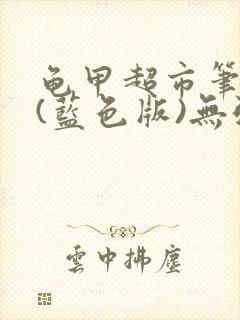 龟甲超市筆
(藍色版)無
雲中拂塵